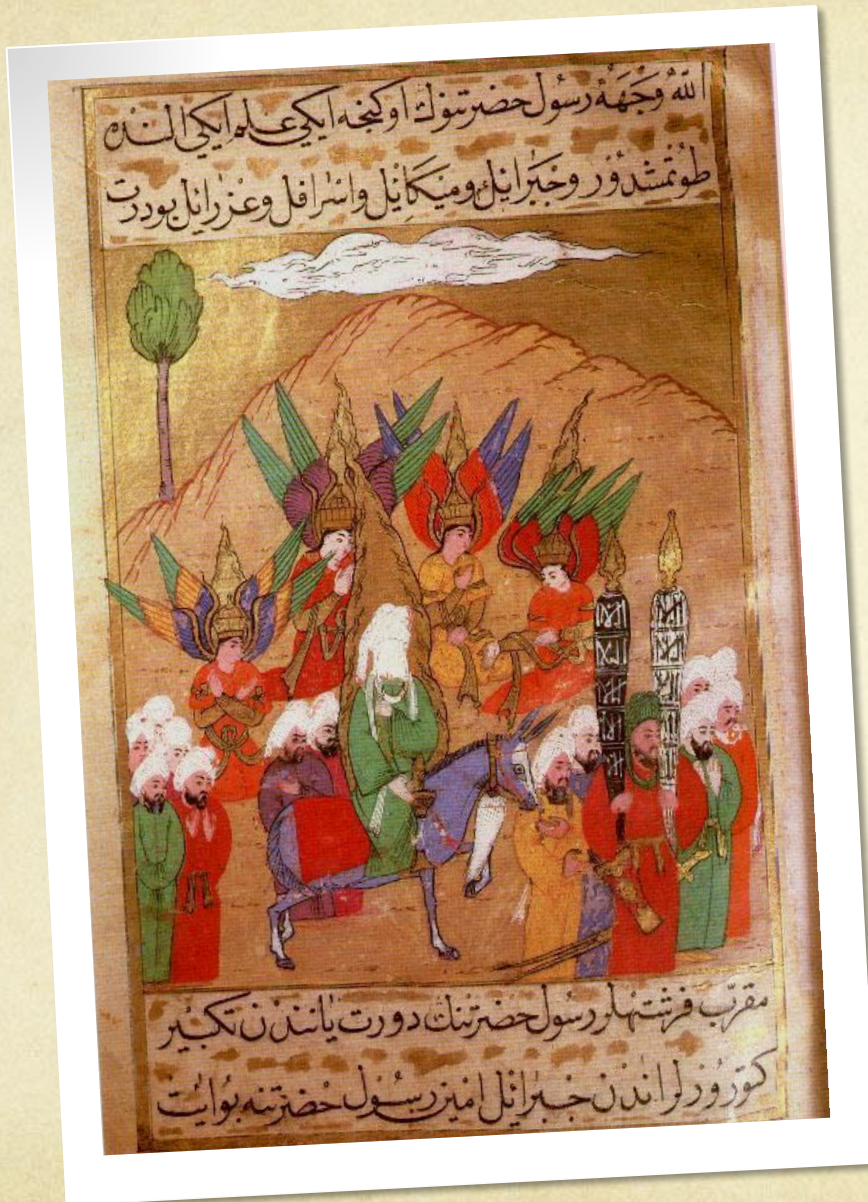 الله وَجْهَهُ رسُول حضرتنوڭ اوكنجه ايكى علم ايكى النده
طوُتمشدوُر وجبَرائل وميكائل واسرافل وعزرائل بودرت
مقرّب فرشتهلر رسُول حضرتنڭ دورت يانندن تكبير
كتوروُرلر اندن جبرائل امين رسُول حضرتنه بوُ ايات